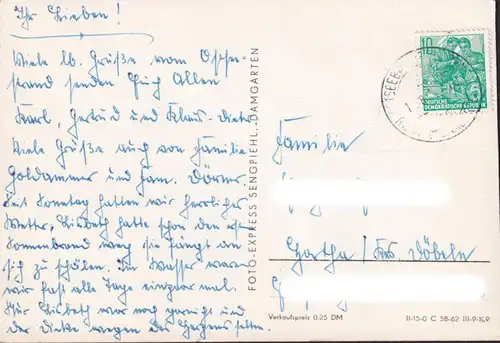 Ihr Lieben!
Viele lb. Grüße vom Ostsee-
strand senden Euch Allen
Karl, Gertrud und Klaus-Dieter
Viele Grüße auch von Familie
Goldammer und Fam. Dörner
Seit Sonntag hatten wir herrliches
Wetter, Lisbeth hatte schon den
Sonnenbrand weg sie fängt an
sich zu schälen. Im Wasser waren
wir fast alle Tage einmal.
Nur Lisbeth war noch garnicht und
der Dicke wegen des selten.
FOTO-EXPRESS SENGPIEHL, DAMGARTEN
10
DEUTSCHE
DEMOKRATISCHE REPUBLIK
Familie
Gertha / Krs Döbeln
Verkaufspreis 0.25 DM
II-15-0 C 58-62 III-9-1L9